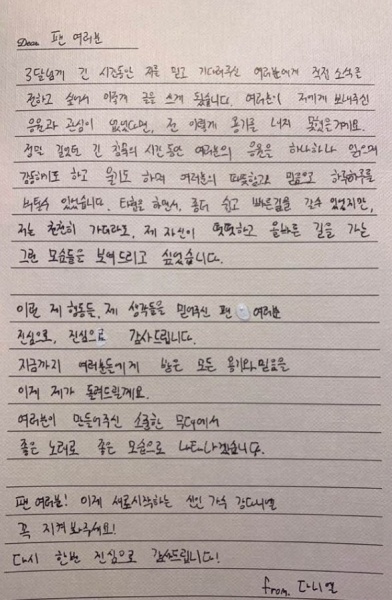 Dear 팬 여러분
3달넘게 긴 시간동안 저를 믿고 기다려주신 여러분에게 직접 소식을
전하고 싶어서 이렇게 글을 쓰게 됐습니다. 여러분이 저에게 보내주신
응원과 관심이 없었다면, 전 이렇게 용기를 내지 못했을거에요.
정말 길었던 긴 침묵의 시간 동안 여러분의 응원을 하나하나 읽으며
감동하기도 하고 울기도 하며 여러분의 따뜻함과 믿음으로 하루하루를
버틸수 있었습니다. 타협을 하면서, 좀더 쉽고 빠른길을 갈수 있었지만,
저는 천천히 가더라도, 제 자신이 떳떳하고 올바른 길을 가는
그런 모습들을 보여드리고 싶었습니다.
이런 제 행동들, 제 생각들을 믿어주신 팬 여러분
진심으로, 진심으로 감사드립니다.
지금까지 여러분들에게 받은 모든 용기와 믿음을
이제 제가 돌려드릴게요.
여러분이 만들어주신 소중한 무대에서
좋은 노래로 좋은 모습으로 나타나겠습니다.
팬 여러분! 이제 새로시작하는 신인 가수 강다니엘
꼭 지켜봐주세요!
다시 한번 진심으로 감사드립니다!
from. 다니엘